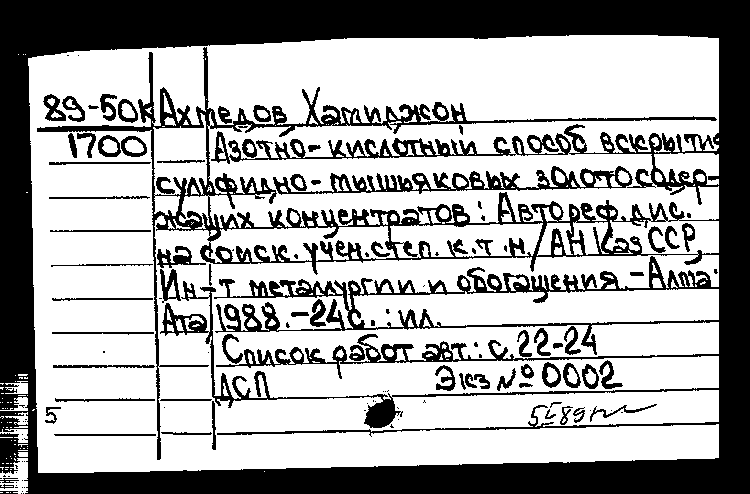 89-50к Ахмедов Хамиджон
1700 Азотно-кислотный способ вскрытия
сульфидно-мышьяковых золотосодер-
жащих концентратов: Автореф. дис.
на соиск. учен. степ. к.т.н. / АН КазССР,
Ин-т металлургии и обогащения. - Алма-
Ата, 1988. - 24 с. : ил.
Список работ авт.: с. 22-24
ДСП Экз № 0002
5